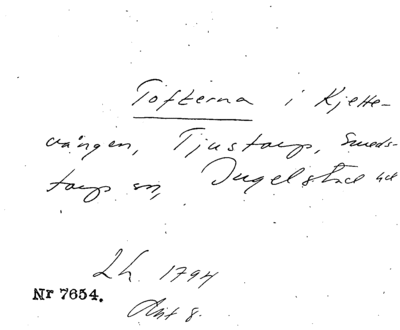 Tofterna i Kjette-
vången, Tjustorp, Smeds-
torp sn, Ingelstad hd
Lh. 1794
Nr 7654.
Akt 8.